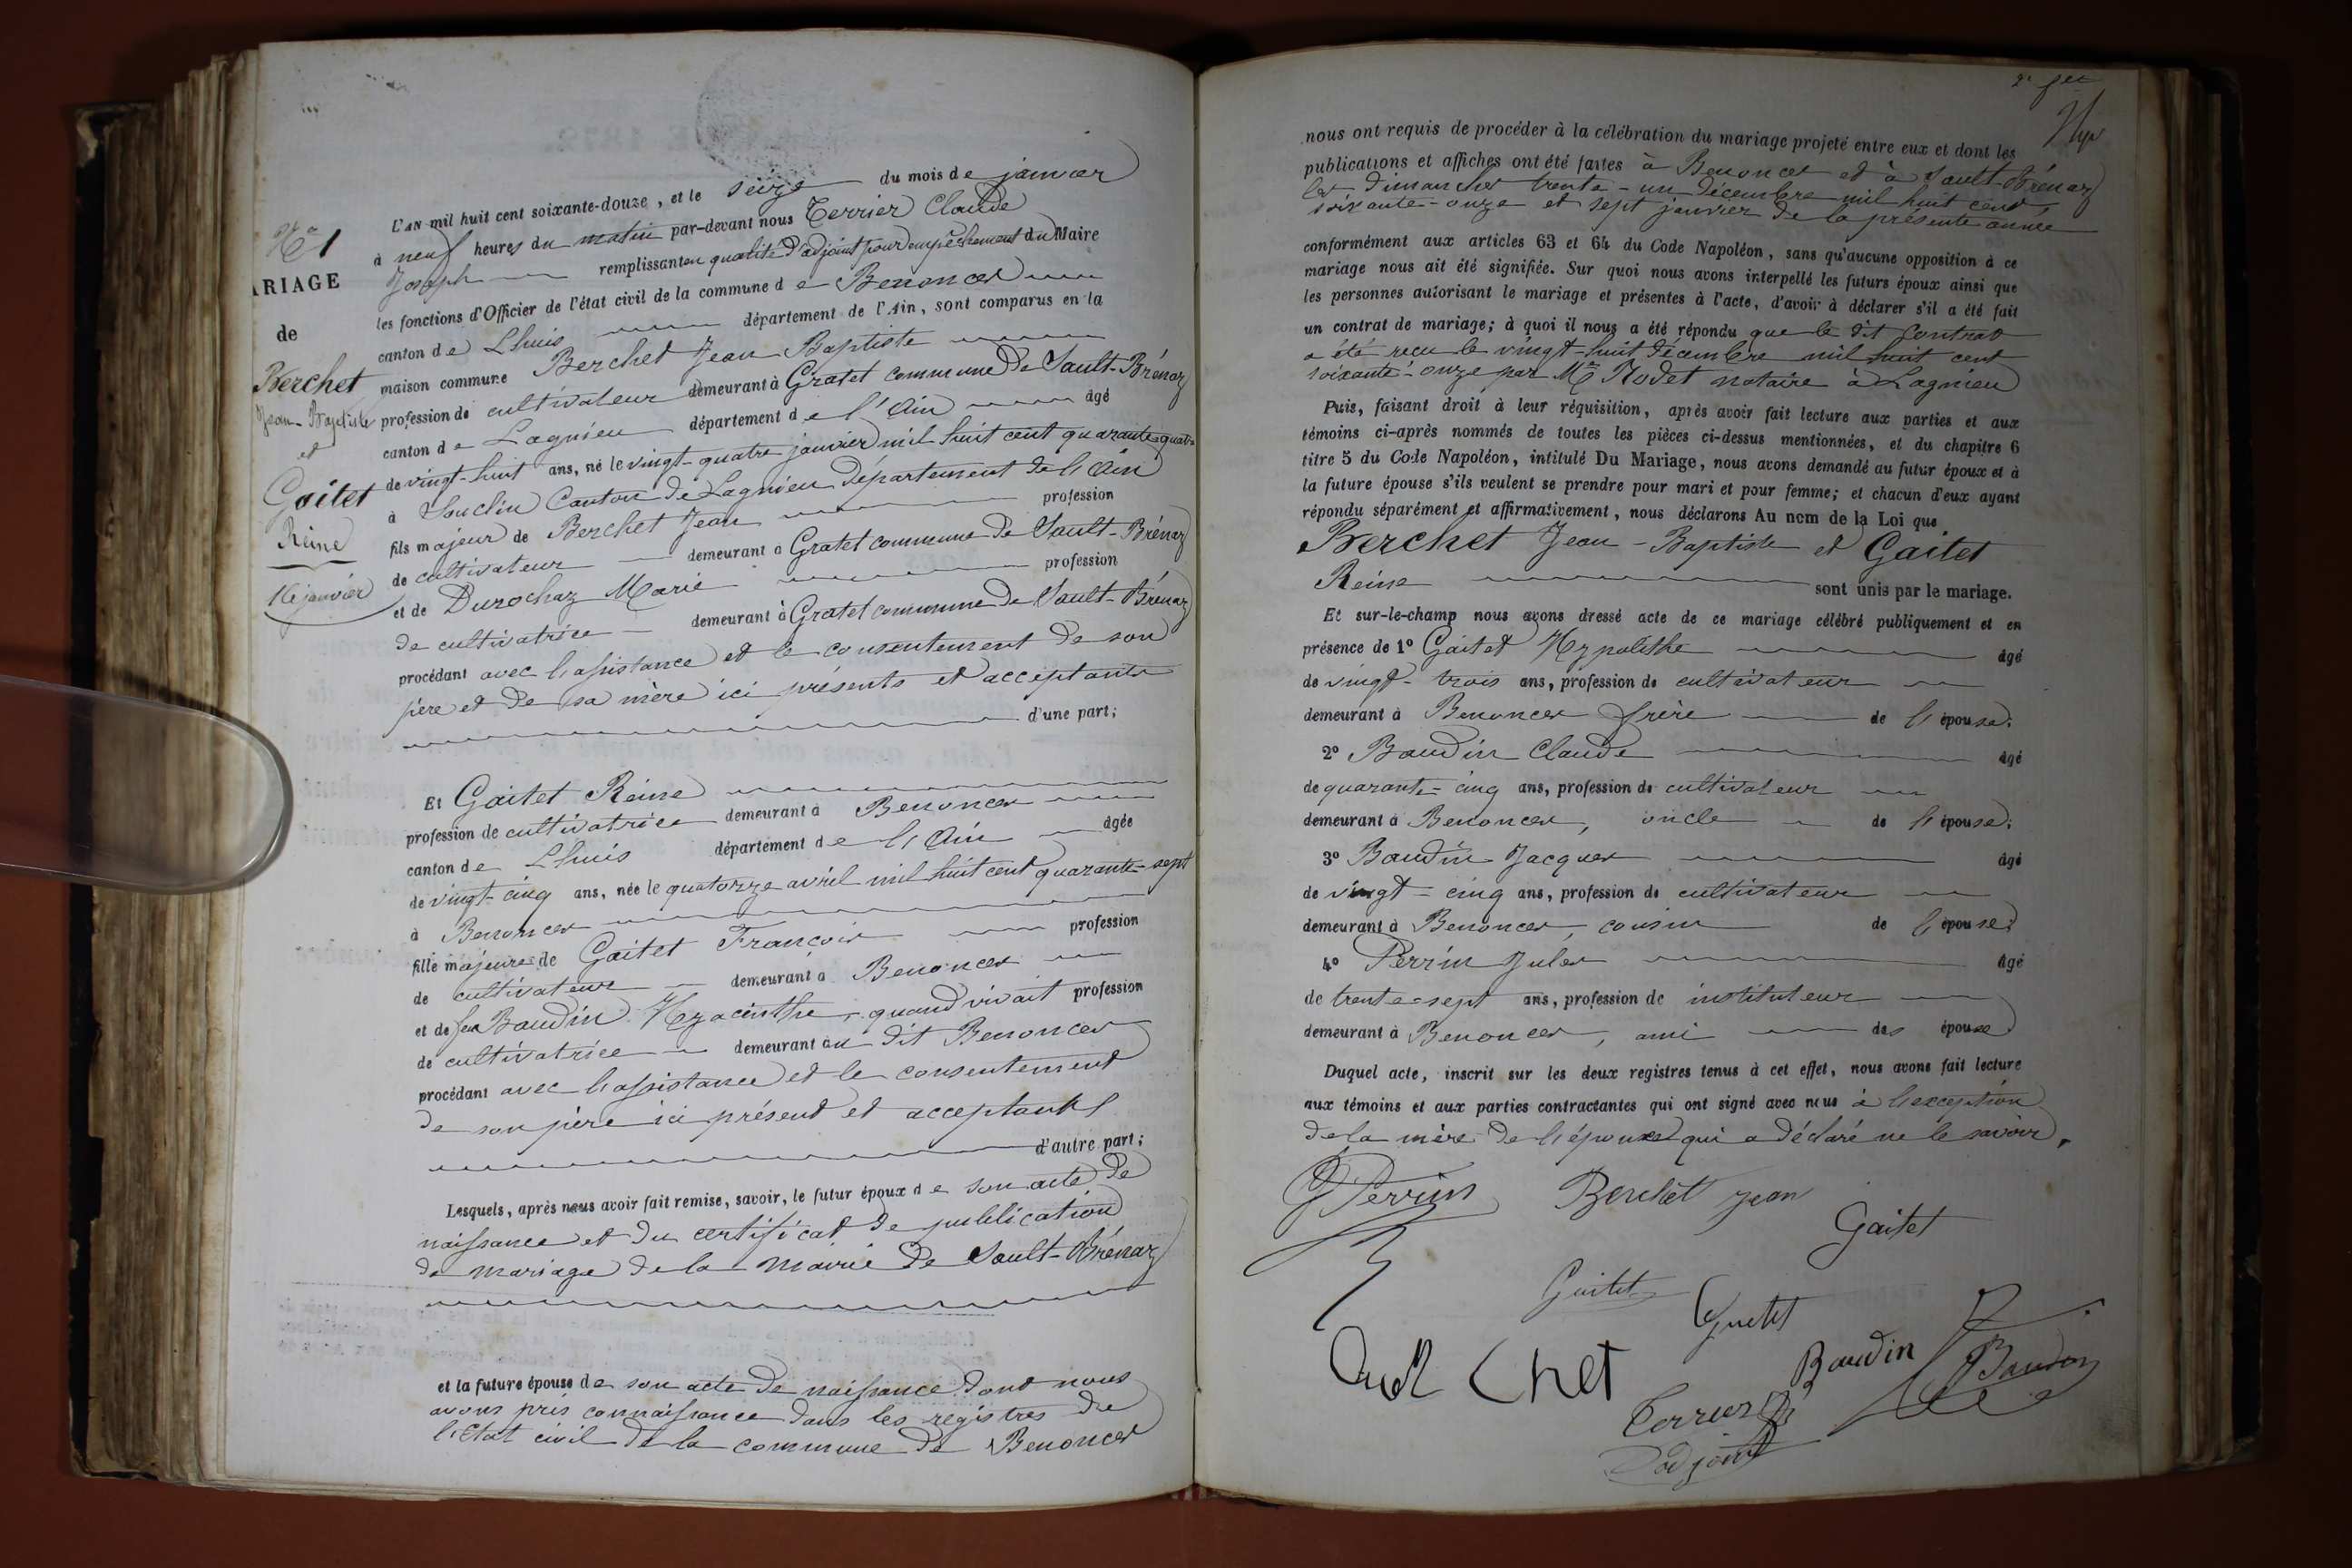 No 1
ARIAGE
de
Berchet
Jean-Baptiste
et
Gaitet
Reine
16 janvier
L'AN mil huit cent soixante-douze, et le seize du mois de janvier
à neuf heures du matin par-devant nous Terrier Claude
Joseph remplissant en qualité d'adjoint pour empêchement du Maire
les fonctions d'Officier de l'état civil de la commune de Benonces
canton de Lhuis département de l'Ain, sont comparus en la
maison commune Berchet Jean Baptiste
profession de cultivateur demeurant à Gratet commune de Sault-Brénaz
canton de Lagnieu département de l'Ain âgé
de vingt-huit ans, né le vingt-quatre janvier mil huit cent quarante-quatre
à Souclin Canton de Lagnieu Département de l'Ain
fils majeur de Berchet Jean profession
de cultivateur demeurant à Gratet commune de Sault-Brénaz
et de Durochaz Marie profession
de cultivatrice demeurant à Gratet commune de Sault-Brénaz
procédant avec l'assistance et le consentement de son
père et de sa mère ici présents et acceptants
d'une part;
Et Gaitet Reine
profession de cultivatrice demeurant à Benonces
canton de Lhuis département de l'Ain âgée
de vingt-cinq ans, née le quatorze avril mil huit cent quarante-sept
à Benonces
fille majeure de Gaitet François profession
de cultivateur demeurant à Benonces
et de feu Baudin Hyacinthe, quand vivait profession
de cultivatrice demeurant au dit Benonces
procédant avec l'assistance et le consentement
de son père ici présent et acceptant
d'autre part;
Lesquels, après nous avoir fait remise, savoir, le futur époux de son acte de
naissance et du certificat de publication
de mariage de la Mairie de Sault-Brénaz
et la future épouse de son acte de naissance dont nous
avons pris connaissance dans les registres de
l'Etat civil de la commune de Benonces
nous ont requis de procéder à la célébration du mariage projeté entre eux et dont les
publications et affiches ont été faites à Benonces et à Sault-Brénaz
les dimanches trente-un décembre mil huit cent
soixante-onze et sept janvier de la présente année
conformément aux articles 63 et 64 du Code Napoléon, sans qu'aucune opposition à ce
mariage nous ait été signifiée. Sur quoi nous avons interpellé les futurs époux ainsi que
les personnes autorisant le mariage et présentes à l'acte, d'avoir à déclarer s'il a été fait
un contrat de mariage; à quoi il nous a été répondu que le dit Contrat
a été reçu le vingt-huit décembre mil huit cent
soixante-onze par Me Rodet notaire à Lagnieu
Puis, faisant droit à leur réquisition, après avoir fait lecture aux parties et aux
témoins ci-après nommés de toutes les pièces ci-dessus mentionnées, et du chapitre 6
titre 5 du Code Napoléon, intitulé Du Mariage, nous avons demandé au futur époux et à
la future épouse s'ils veulent se prendre pour mari et pour femme; et chacun d'eux ayant
répondu séparément et affirmativement, nous déclarons Au nom de la Loi que
Berchet Jean-Baptiste et Gaitet
Reine sont unis par le mariage.
Et sur-le-champ nous avons dressé acte de ce mariage célébré publiquement et en
présence de 1° Gaitet Hypolithe âgé
de vingt-trois ans, profession de cultivateur
demeurant à Benonces frère de l'épouse;
2° Baudin Claude âgé
de quarante-cinq ans, profession de cultivateur
demeurant à Benonces, oncle de l'épouse;
3° Baudin Jacques âgé
de vingt-cinq ans, profession de cultivateur
demeurant à Benonces, cousin de l'épouse;
4° Perrin Jules âgé
de trente-sept ans, profession de instituteur
demeurant à Benonces, ami des époux
Duquel acte, inscrit sur les deux registres tenus à cet effet, nous avons fait lecture
aux témoins et aux parties contractantes qui ont signé avec nous à l'exception
de la mère de l'époux qui a déclaré ne le savoir.
J Perrin Berchet Jean
Gaitet
Gaitet
Gaitet
chet
Baudin Baudin
Terrier
adjoint